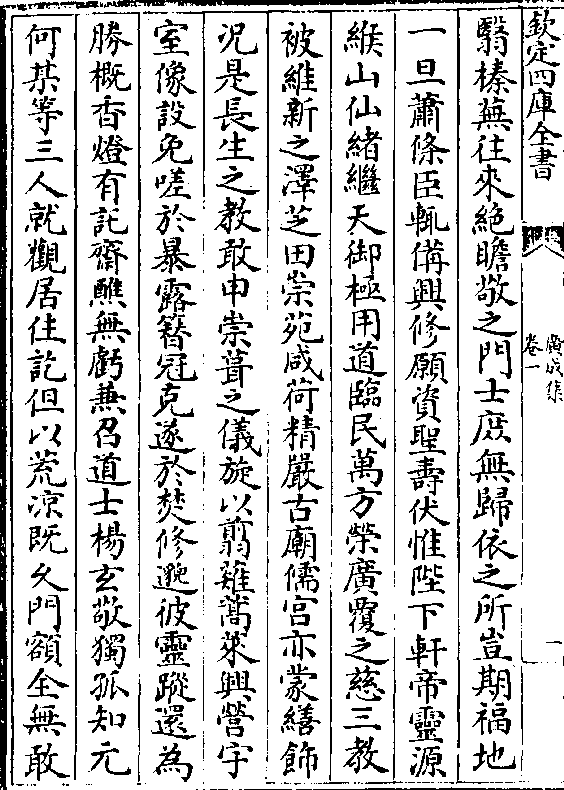 欽定四庫全書
廣成集
卷一
一
翳榛蕪往來絶瞻敬之門士庶無歸依之所豈期福地
一旦蕭條臣輒備興修願資聖壽伏惟陛下軒帝靈源
緱山仙緒繼天御極用道臨民萬方榮廣覆之慈三教
被維新之澤芝田崇苑咸荷精嚴古廟儒宫亦蒙繕飾
况是長生之教敢申崇葺之儀旋以翦薙蒿萊興營宇
室像設免嗟於暴露簮冠克遂於焚修邈彼靈蹤還為
勝概香燈有託齋醮無虧兼召道士楊玄敬獨孤知元
何某等三人就觀居住訖但以荒凉既久門額全無敢